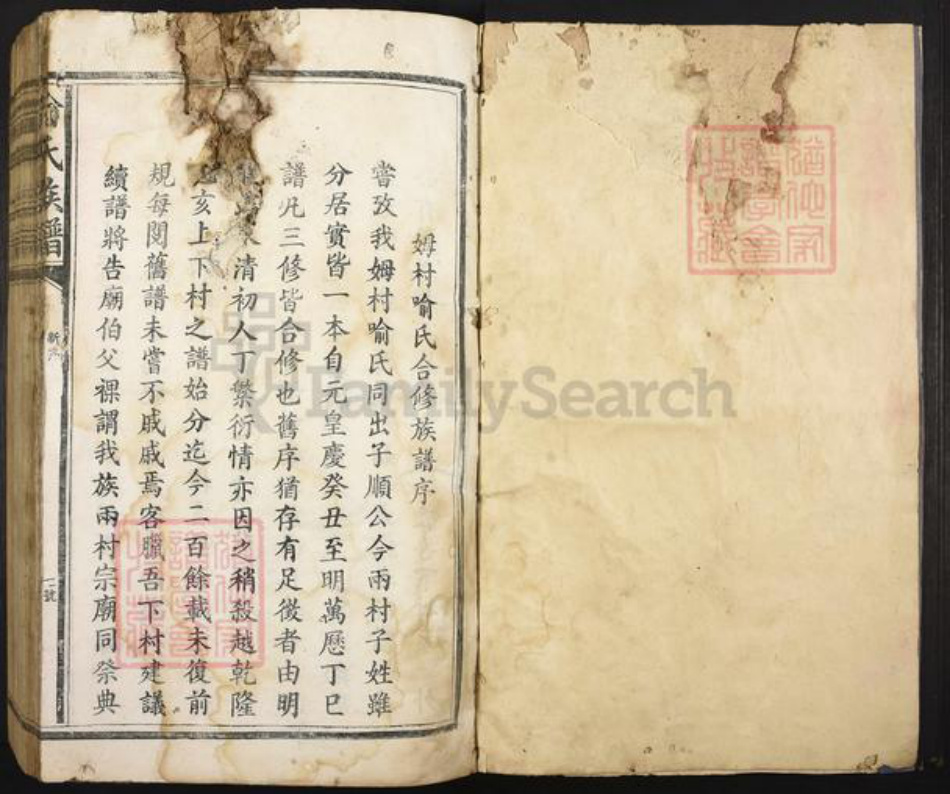 姆村喻氏合修族譜序
嘗攷我姆村喻氏同出子順公今兩村子姓雖
分居實皆一本自元皇慶癸丑至明萬厯丁巳
譜凡三修皆合修也舊序猶存有足徵者由明
清初人丁繁衍情亦因之稍殺越乾隆
亥上下村之譜始分迄今二百餘載未復前
規每閱舊譜未嘗不戚戚焉客臘吾下村建議
續譜將告廟伯父祼謂我族兩村宗廟同祭典
喻氏族譜
新序
一號
FamilySearch